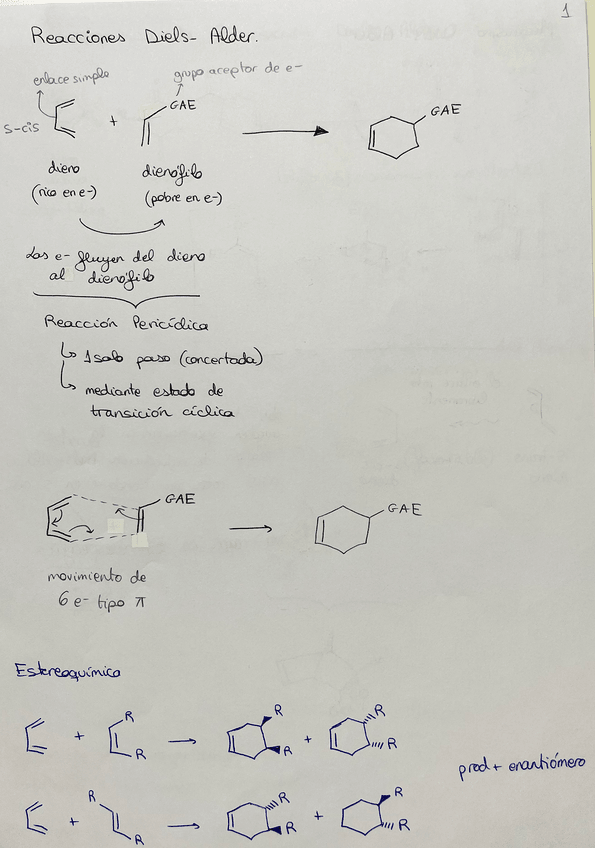 1
Reacciones Diels-Alder.
enlace simple
grupo aceptor de e-
S-cis
+
GAE
GAE
dieno
dienófilo
(rico en e-)
(pobre en e-)
Los e- fluyen del dieno
al dienófilo
Reacción Pericíclica
1 solo paso (concertada)
mediante estado de
transición cíclica
GAE
GAE
movimiento de
6 e- tipo π
Estereoquímica
+
R
R
R
R
+
R
R
prod + enantiómero
+
R
R
R
R
+
R
R